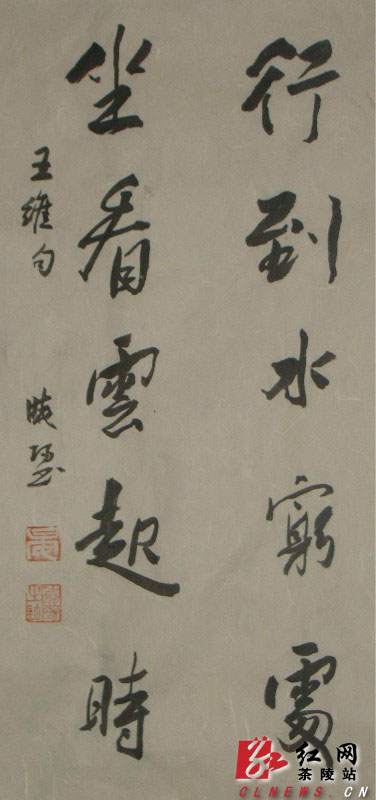 行到水窮處
坐看雲起時
王維句
红网
茶陵站
CLNEWS.CN